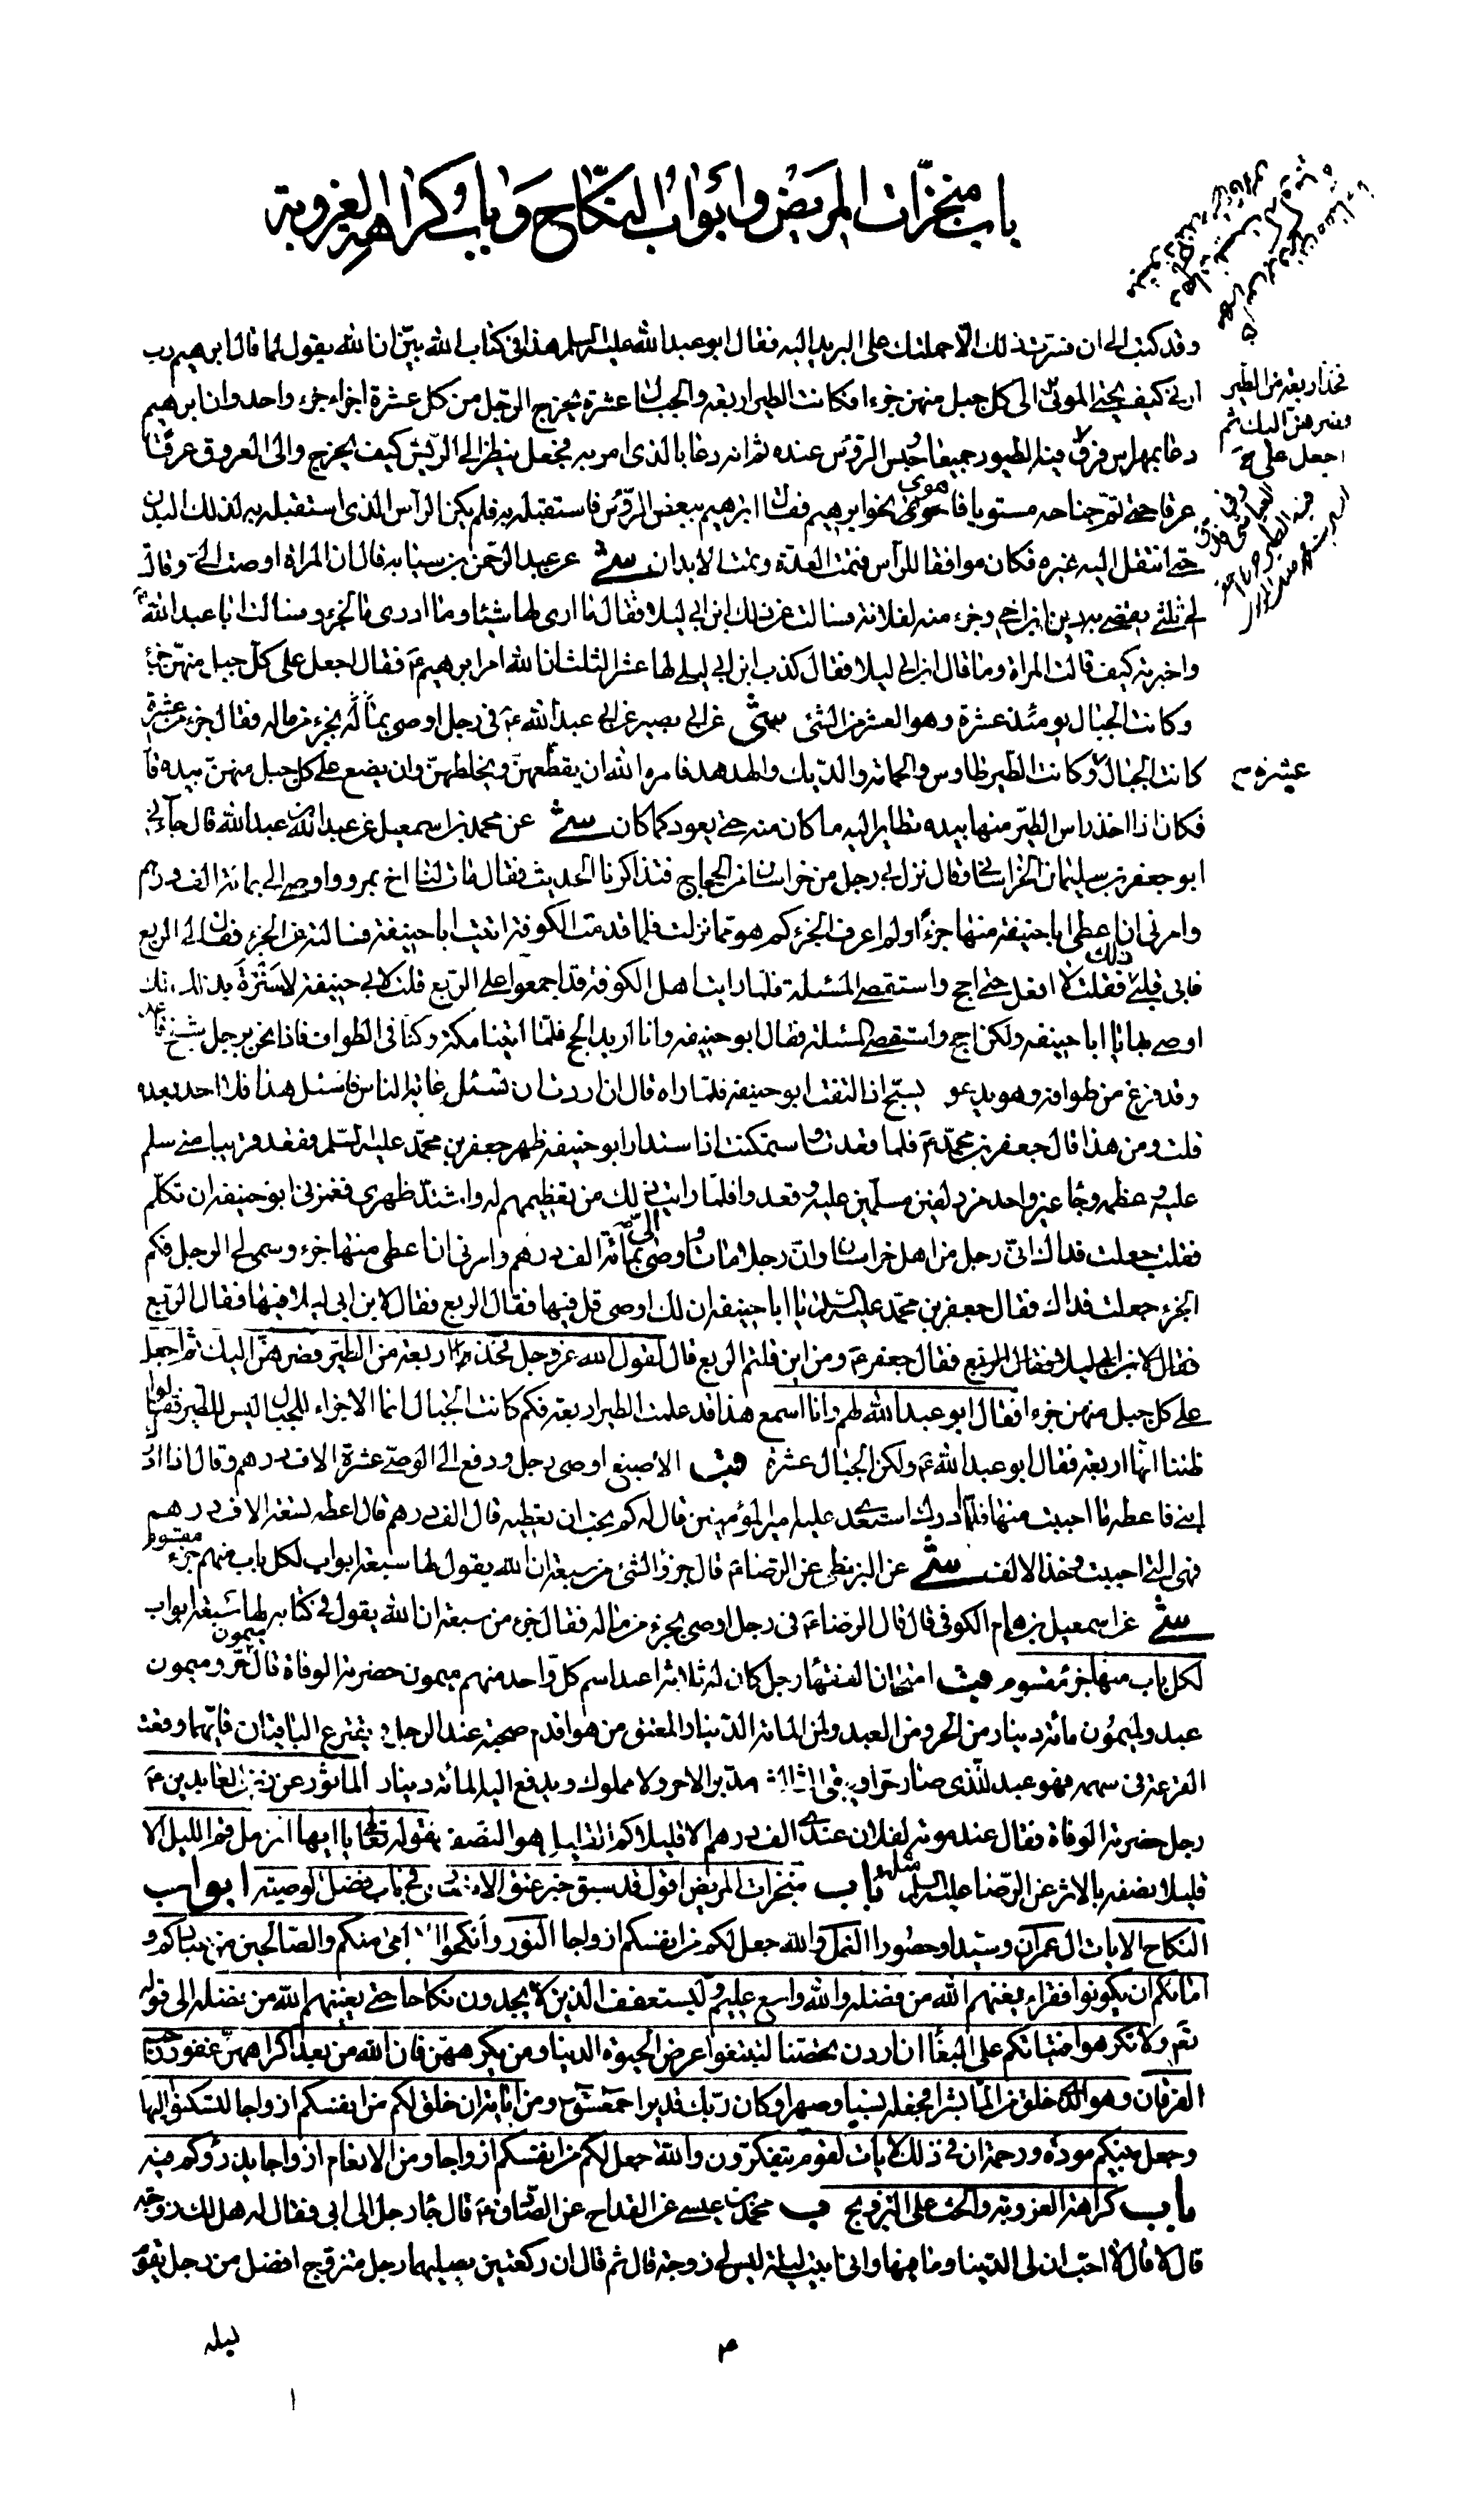 باب منجزات المريض وأبواب النكاح وباب كراهة العزوبة
وقد كتب الى ان فسرت ذلك لك والا حملتك على البريد اليه فقال ابو عبد الله عليه السلم هذا في كتاب الله بيّن ان الله يقول لما قال ابرهيم رب
ارني كيف تحيي الموتى الى كل جبل منهن جزءا فكانت الطير اربعة والجبال عشرة يخرج الرجل من كل عشرة اجزاء جزء واحد وان ابرهيم
فخذ اربعة من الطير
فصرهن اليك ثم
اجعل على
دعا بمهراس فدق فيه الطيور جميعا وحبس الرؤس عنده ثم انه دعا بالذي امر به فجعل ينظر الى الريش كيف يخرج والى العروق عرقا
عرقا حتى تم جناحه مستويا فاهوى نحو ابرهيم فقال ابرهيم ببعض الرؤس فاستقبله به فلم يكن الرأس الذي استقبله به لذلك البدن
حتى انتقل اليه غيره فكان موافقا للرأس فتمت العدة وتمت الابدان شى عن عبد الرحمن بن سيابة قال ان المراة اوصت الى وقالت
لي ثلثي يقضى به دين ابن اخي وجزء منه لفلانة فسالت عن ذلك ابن ابي ليلا فقال ما ارى لها شيئا وما ادرى ما الجزء وسالت ابا عبد الله ع
واخبرته كيف قالت المراة وما قال ابن ابي ليلا فقال كذب ابن ابي ليلى لها عشر الثلث ان الله امر ابرهيم ع فقال اجعل على كل جبل منهن جزء
وكانت الجبال يومئذ عشرة وهو العشر من الشئ شى عن ابي بصير عن ابي عبد الله ع في رجل اوصى بماله بجزء من ماله فقال جزء من عشرة
كانت الجبال وكانت الطير طاوس والحمامة والديك والهدهد فامره الله ان يقطعهن ويخلطهن وان يضع على كل جبل منهن بيده
عشرة
فكان اذا اخذ راس الطير منها بيده تطاير اليه ما كان منه حتى يعود كما كان شى عن محمد بن اسمعيل عن عبد الله بن عبد الله قال جاءني
ابو جعفر بن سليمان الخراساني وقال نزل بي رجل من خراسان من الحجاج فتذاكرنا الحديث فقال مات لنا اخ بمرو واوصى الى بمائة الف درهم
وامرني ان اعطى ابا حنيفة منها جزءا ولم اعرف الجزء كم هو مما ترك فلما قدمت الكوفة اتيت ابا حنيفة فسالته عن الجزء فقال لي الربع
فابى قلبي ذلك فقلت لا افعل حتى احج واستقصى المسئلة فلما رايت اهل الكوفة قد اجمعوا على الربع قلت لابي حنيفة لا سترة بذلك لك
اوصى بها يا ابا حنيفة ولكن احج واستقصى المسئلة فقال ابو حنيفة وانا اريد الحج فلما اتينا مكة وكنا في الطواف فاذا نحن برجل شيخ قاعد
وقد فرغ من طوافه وهو يدعو يسبح اذ التفت ابو حنيفة فلما راه قال ان اردت ان تسئل غاية الناس فاسئل هذا فلا احد بعده
قلت ومن هذا قال جعفر بن محمد ع فلما قعدت واستمكنت اذا استدار ابو حنيفة ظهر جعفر بن محمد عليه السلم فقعد قريبا مني سلم
عليه وعظمه وجاء غير واحد مزدلفين مسلمين عليه وقعدوا فلما رايت ذلك من تعظيمهم له واشتد ظهرى فغمزني ابو حنيفة ان تكلم
فقلت جعلت فداك اني رجل من اهل خراسان وان رجلا مات واوصى الى بمائة الف درهم وامرني ان اعطى منها جزء وسمى لي الرجل فكم
الجزء جعلت فداك فقال جعفر بن محمد عليه السلم يا ابا حنيفة ان لك اوصى قل فيها فقال الربع فقال لابن ابي ليلا قل فيها فقال الربع
فقال لابن ابي ليلا فقال الربع فقال جعفر ع ومن اين قلتم الربع قال لقول الله عز وجل فخذ اربعة من الطير فصرهن اليك ثم اجعل
على كل جبل منهن جزءا فقال ابو عبد الله لهم وانا اسمع هذا قد علمت الطير اربعة فكم كانت الجبال انما الاجزاء للجبال ليس للطير فقالوا
ظننا انها اربعة فقال ابو عبد الله ع ولكن الجبال عشرة قب الاصبغ اوصى رجل ودفع الى الوصي عشرة الاف درهم وقال اذا ادرك
ابني فاعطه ما احببت منها فلما ادرك استعدى عليه امير المؤمنين قال له كم تحب ان تعطيه قال الف درهم قال اعطه تسعة الاف درهم
فهي التي احببت وخذ الالف شى عن البزنطي عن الرضا ع قال جزء الشئ من سبعة ان الله يقول لها سبعة ابواب لكل باب منهم جزء مقسوم
شى عن اسمعيل بن همام الكوفي قال قال الرضا ع في رجل اوصى بجزء من ماله فقال جزء من سبعة ان الله يقول في كتابه لها سبعة ابواب
لكل باب منها جزء مقسوم قب امتحان الفقهاء رجل كان له ثلاثة اعبد اسم كل واحد منهم ميمون حضرته الوفاة قال ميمون حر وميمون
عبد ولميمون مائة دينار من الحر ومن العبد ولمن المائة الدينار المعتق من هو اقدم صحبة عند الرجل ويقترع الباقيان فايهما وقعت
القرعة في سهمه فهو عبد للذي صار حرا ويبقى الثالث مدبرا لا حر ولا مملوك ويدفع اليه المائة دينار الماثور عن زين العابدين ع
رجل حضرته الوفاة فقال عند موته لفلان عندي الف درهم الا قليلا كم القليل هو النصف بقوله تعالى يا ايها المزمل قم الليل الا
قليلا نصفه بالاثر عن الرضا عليه السلم مثله باب منجزات المريض اقول قد سبق خبر عتق في باب فضل الوصية ابواب
النكاح الايات ال عمران وسيدا وحصورا النحل والله جعل لكم من انفسكم ازواجا النور وأنكحوا الايامى منكم والصالحين من عبادكم و
امائكم ان يكونوا فقراء يغنهم الله من فضله والله واسع عليم وليستعفف الذين لا يجدون نكاحا حتى يغنيهم الله من فضله الى قوله
تع ولا تكرهوا فتياتكم على البغاء ان اردن تحصنا لتبتغوا عرض الحيوة الدنيا ومن يكرههن فان الله من بعد اكراههن غفور رحيم
الفرقان وهو الذي خلق من الماء بشرا فجعله نسبا وصهرا وكان ربك قديرا حمعسق ومن اياته ان خلق لكم من انفسكم ازواجا لتسكنوا اليها
وجعل بينكم مودة ورحمة ان في ذلك لايات لقوم يتفكرون والله جعل لكم من انفسكم ازواجا ومن الانعام ازواجا يذرؤكم فيه
باب كراهة العزوبة والحث على التزويج ب محمد بن عيسى عن القداح عن الصادق ع قال جاء رجل الى ابي فقال له هل لك زوجة
قال لا قال لا احب ان لي الدنيا وما فيها واني ابيت ليلة ليس لي زوجة قال ثم قال ان ركعتين يصليهما رجل متزوج افضل من رجل يقوم
ليله